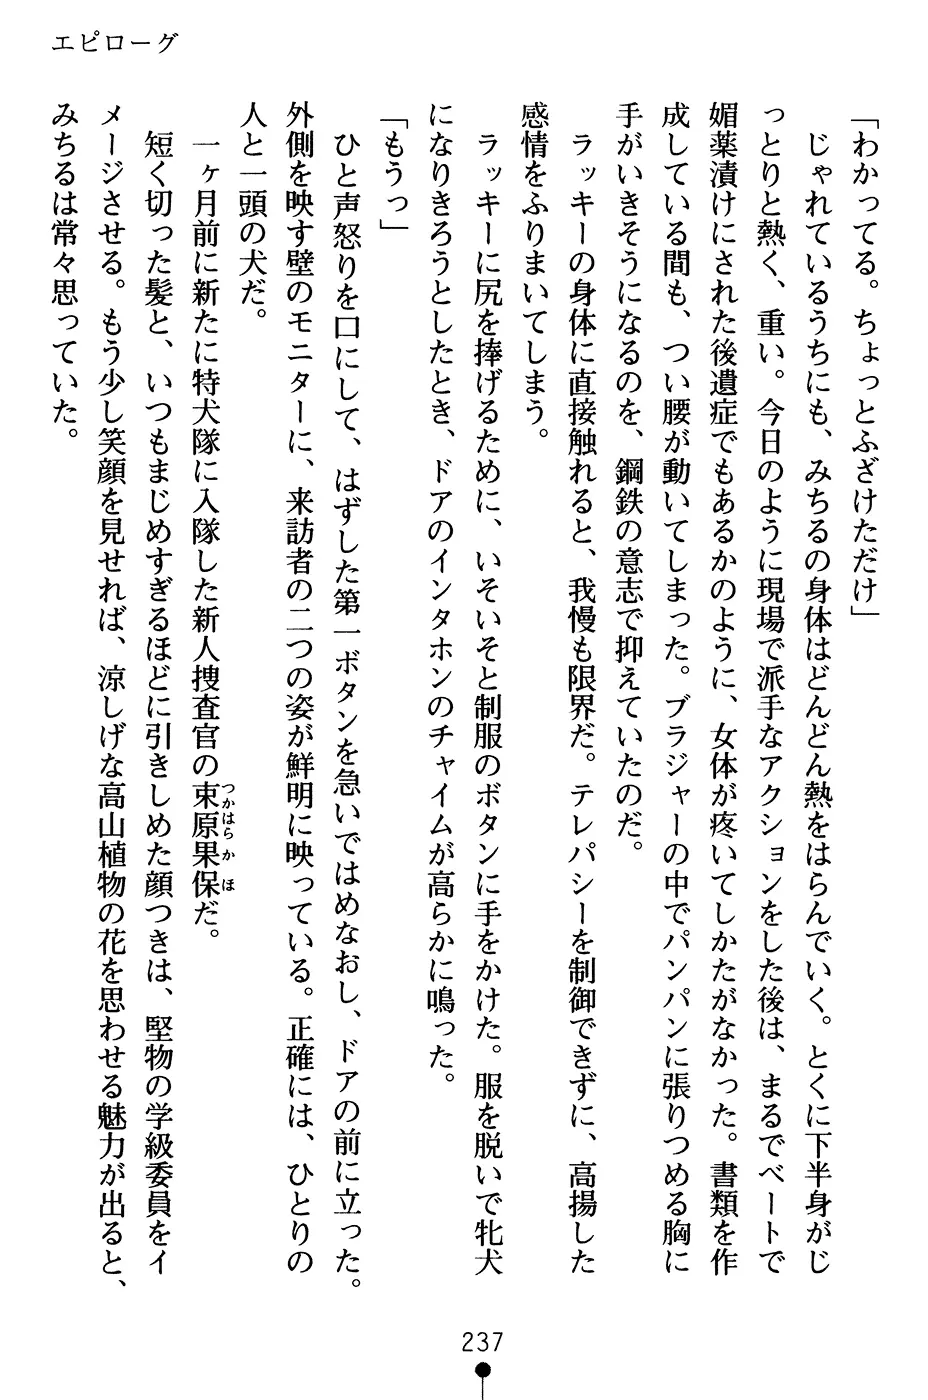 エピローグ
「わかってる。ちょっとふざけただけ」
じゃれているうちにも、みちるの身体はどんどん熱をはらんでいく。とくに下半身がじ
っとりと熱く、重い。今日のように現場で派手なアクションをした後は、まるでベートで
媚薬漬けにされた後遺症でもあるかのように、女体が疼いてしかたがなかった。書類を作
成している間も、つい腰が動いてしまった。ブラジャーの中でパンパンに張りつめる胸に
手がいきそうになるのを、鋼鉄の意志で抑えていたのだ。
ラッキーの身体に直接触れると、我慢も限界だ。テレパシーを制御できずに、高揚した
感情をふりまいてしまう。
ラッキーに尻を捧げるために、いそいそと制服のボタンに手をかけた。服を脱いで牝犬
になりきろうとしたとき、ドアのインタホンのチャイムが高らかに鳴った。
「もうっ」
ひと声怒りを口にして、はずした第一ボタンを急いではめなおし、ドアの前に立った。
外側を映す壁のモニターに、来訪者の二つの姿が鮮明に映っている。正確には、ひとりの
人と一頭の犬だ。
一ヶ月前に新たに特犬隊に入隊した新人捜査官の束原果保だ。
つかはらかほ
短く切った髪と、いつもまじめすぎるほどに引きしめた顔つきは、堅物の学級委員をイ
メージさせる。もう少し笑顔を見せれば、涼しげな高山植物の花を思わせる魅力が出ると、
みちるは常々思っていた。
237